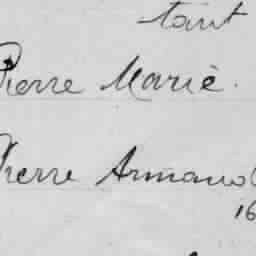 tant
Pierre Marie.
Pierre Armand
16